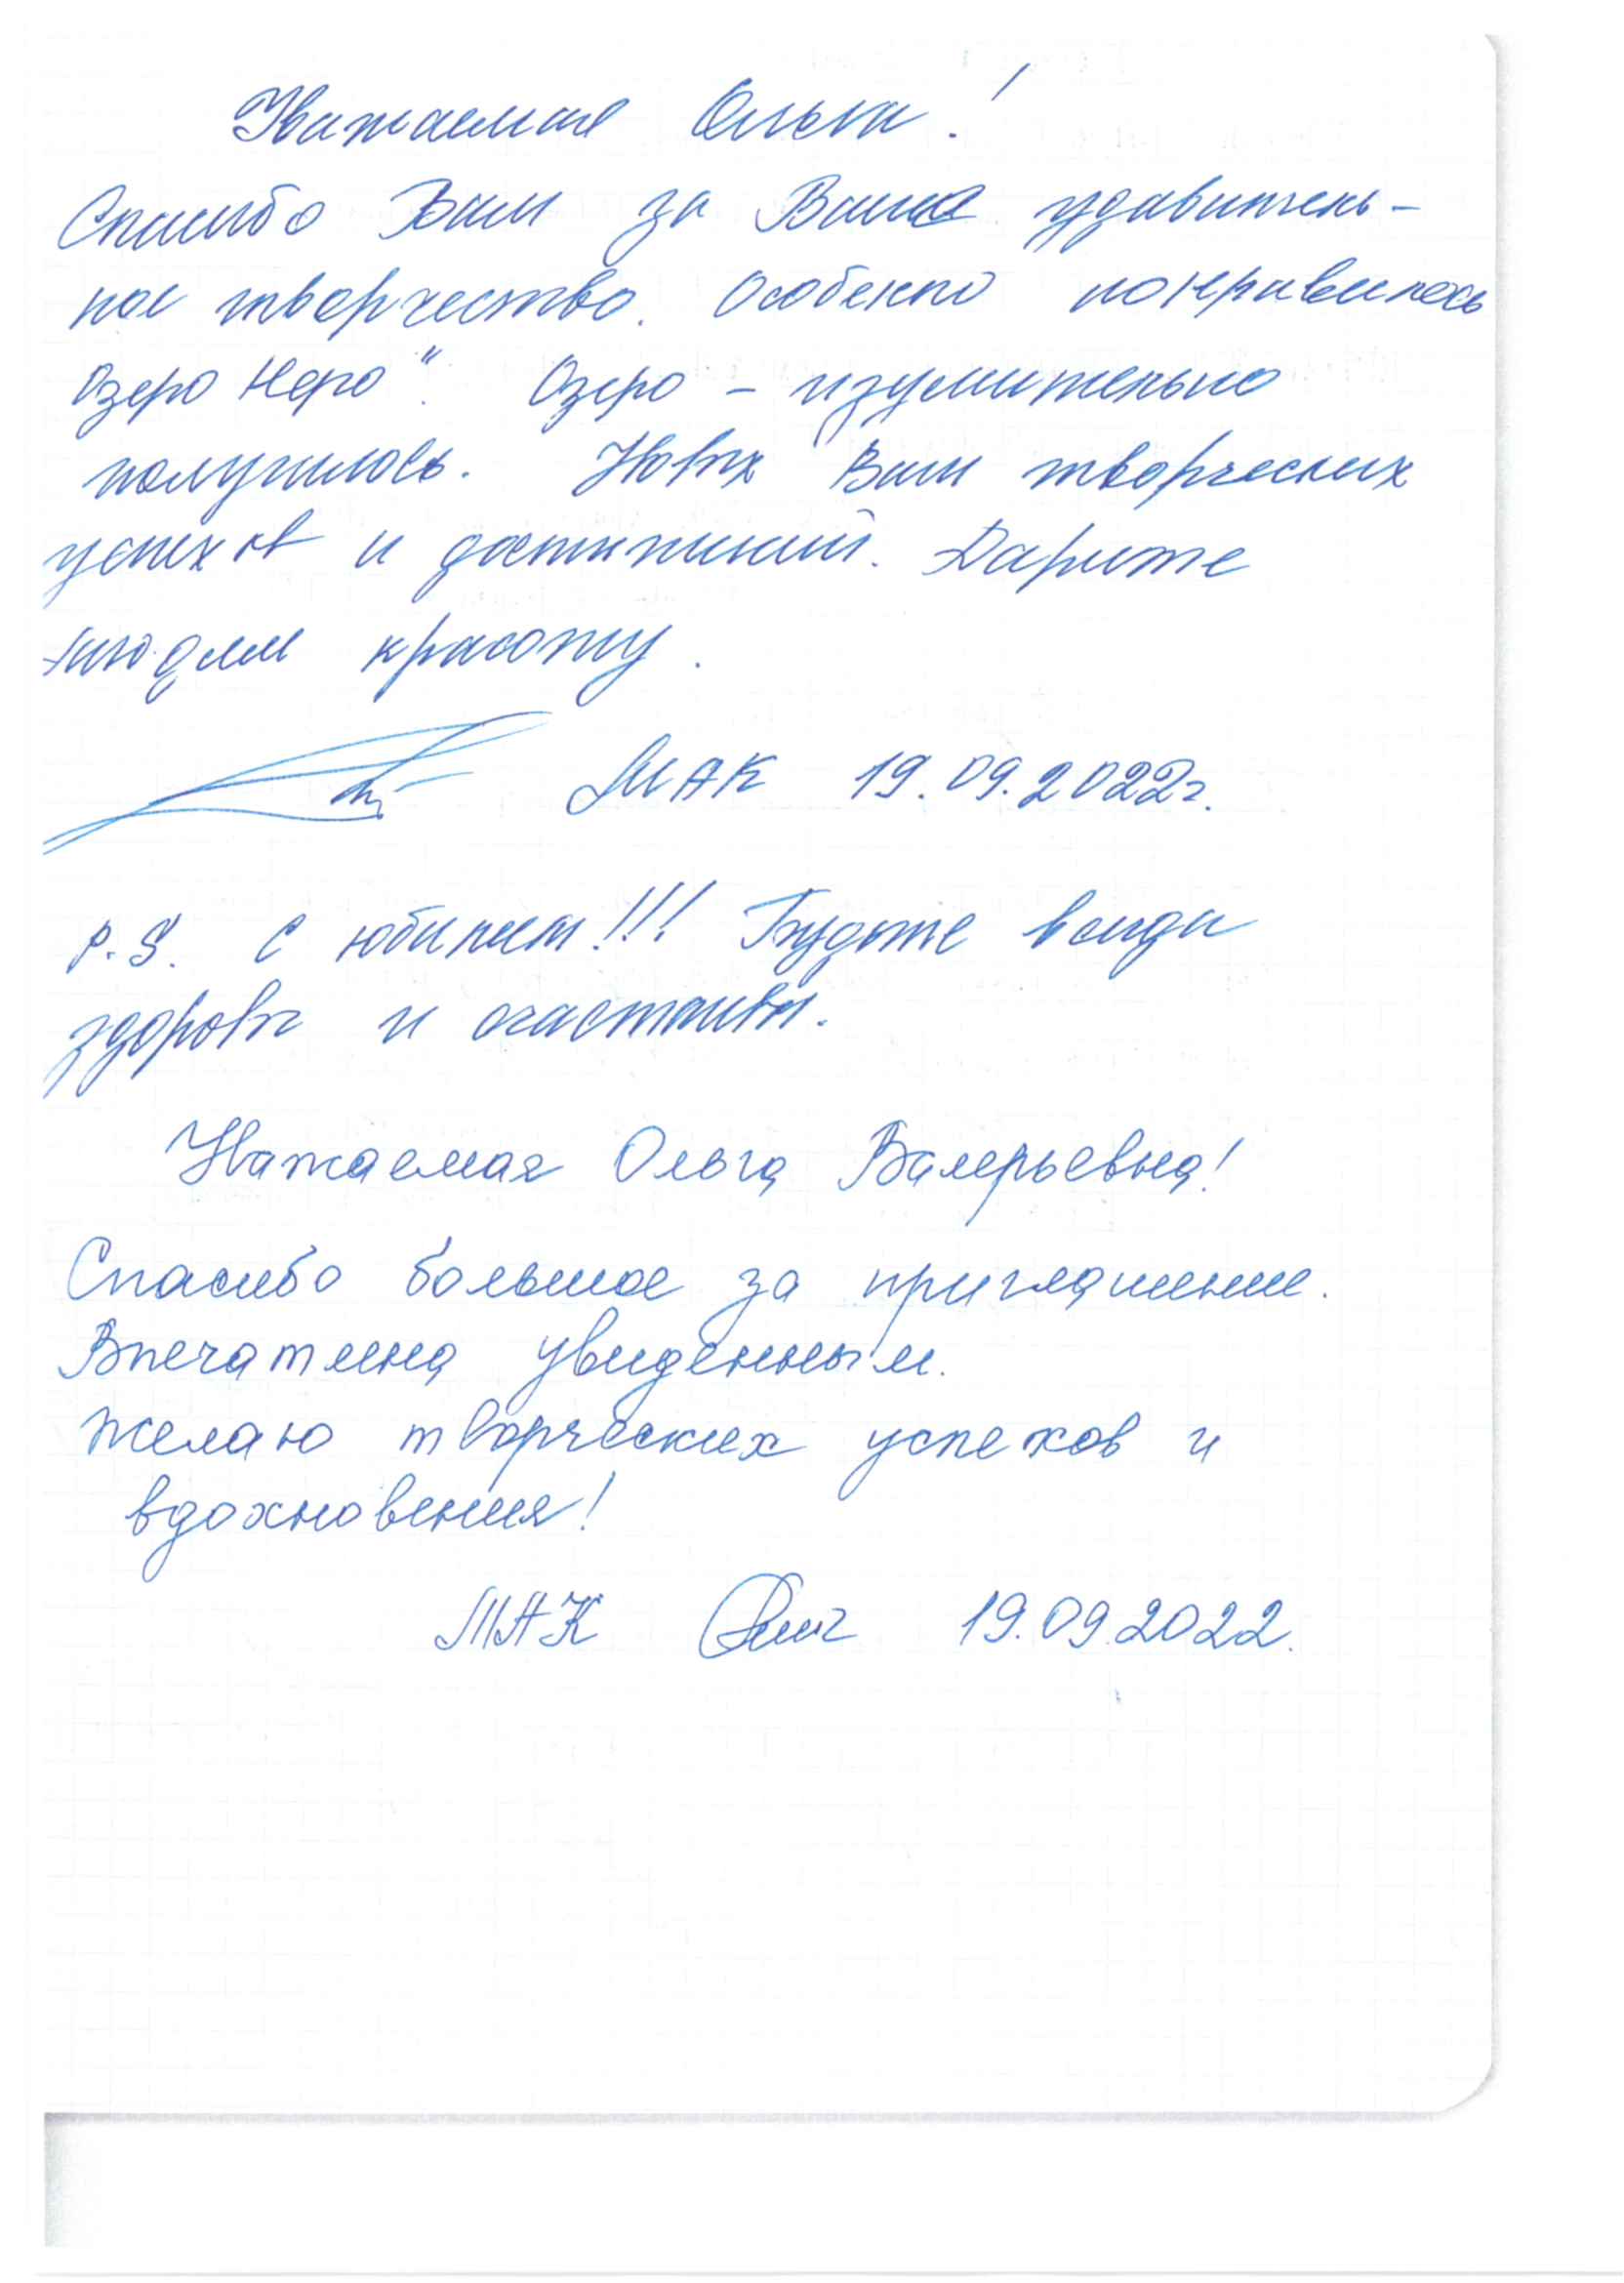 Уважаемая Ольга!
Спасибо Вам за Ваше удивитель-
ное творчество. Особенно понравилось
Озеро Неро". Озеро - изумительно
получилось. Новых Вам творческих
успехов и достижений. Дарите
людям красоту.
МАК 19.09.2022г.
P.S. С юбилеем!!! Будьте всегда
здоровы и счастливы.
Уважаемая Ольга Валерьевна!
Спасибо большое за приглашение.
Впечатлена увиденным.
Желаю творческих успехов и
вдохновения!
МАК 19.09.2022.